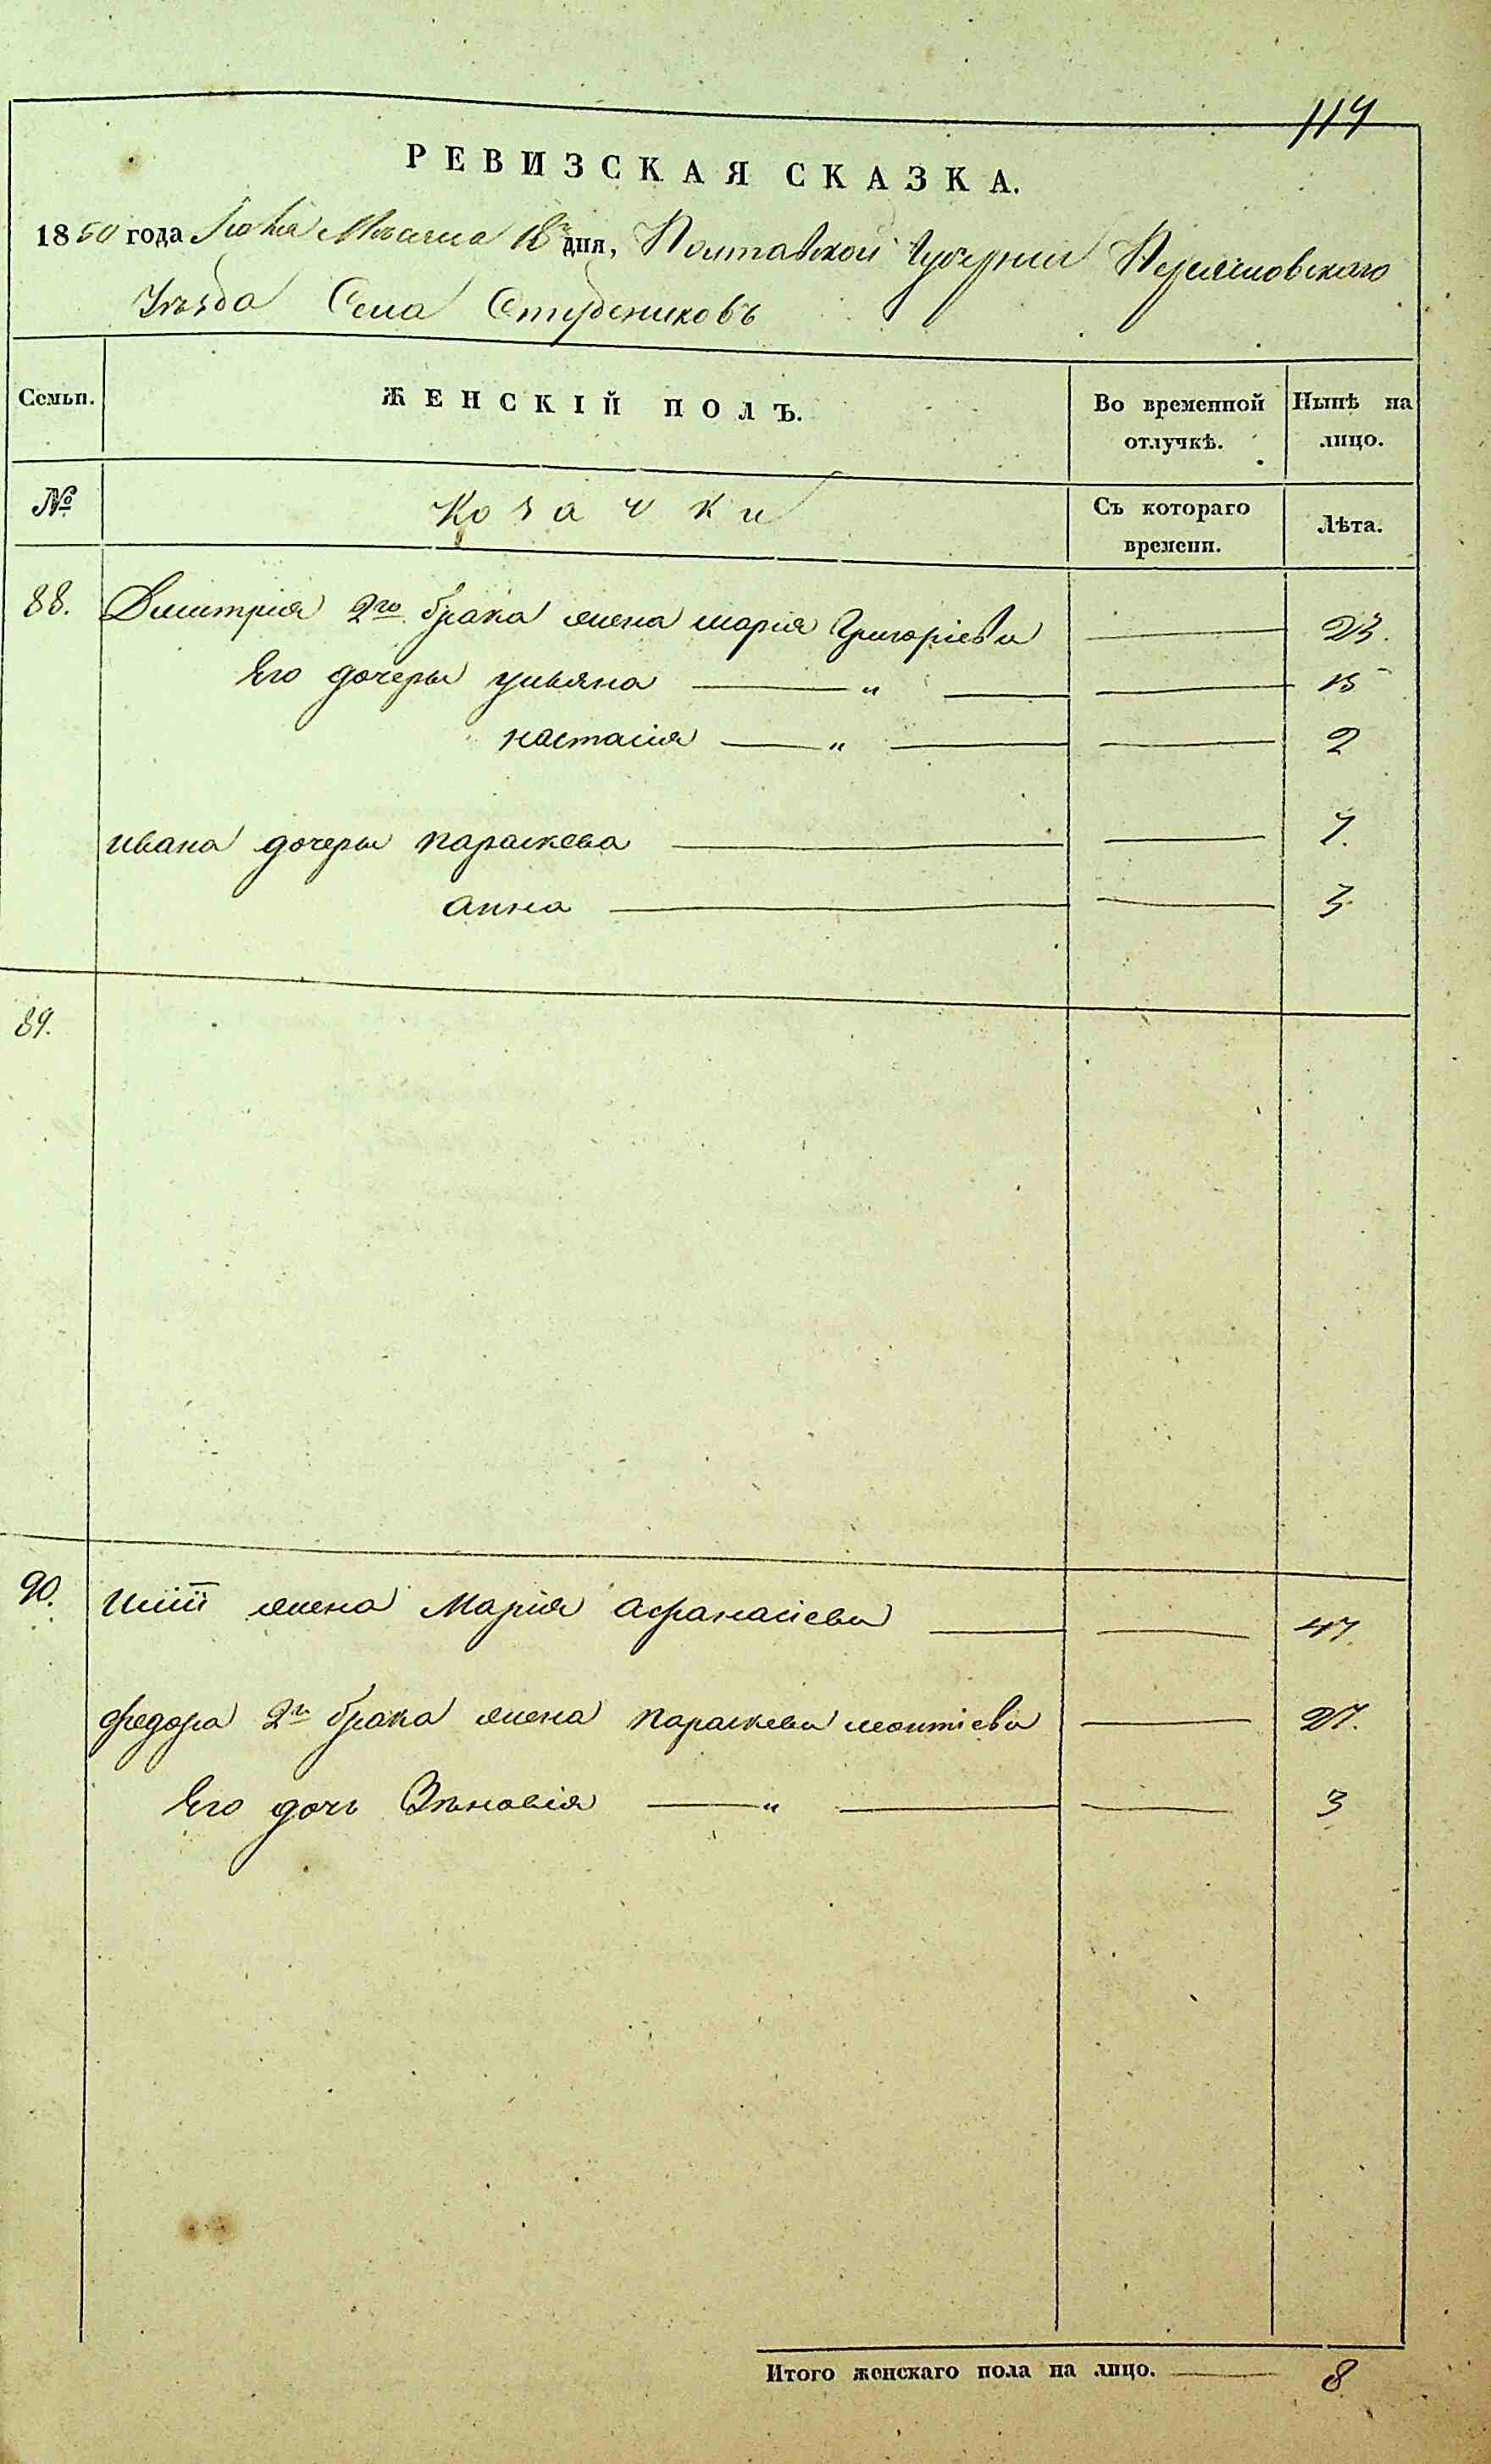 114
РЕВИЗСКАЯ СКАЗКА.
1850 года Іюня Мѣсяца 18 дня, Полтавской Губерніи Переясловскаго
Уѣзда Села Студениковъ
Семьи. ЖЕНСКІЙ ПОЛЪ. Во временной отлучкѣ. Нынѣ на лицо.
№ Козачки Съ котораго времени. Лѣта.
88. Дмитрія 2го брака жена марія Григоріева 23.
Его дочеры ульяна " 15
настасія " 2
ивана дочеры параскева 7.
анна 3
89.
90. жена Марія афанасіева 47.
федора 2го брака жена параскева леонтіева 27.
Его дочь Зѣновія " 3
Итого женскаго пола на лицо. 8